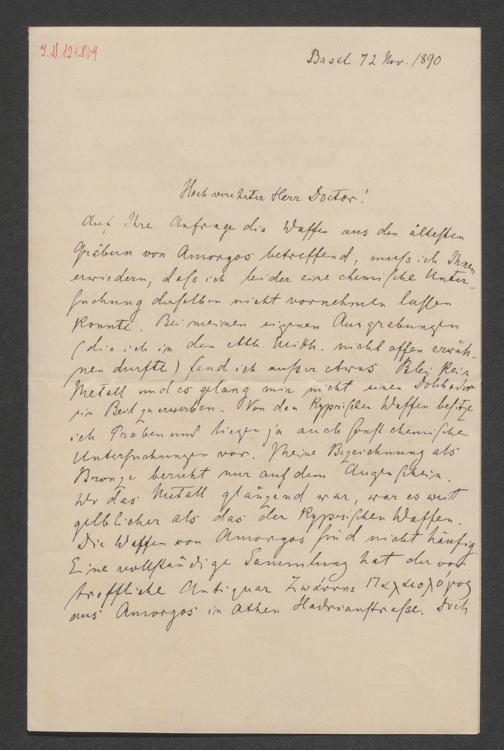 I.N. 121.869
Basel 12 Nov. 1890
Hochverehrter Herr Doctor!
Auf Ihre Anfrage die Waffen aus den ältesten
Gräbern von Amorgos betreffend, muß ich Ihnen
erwiedern, daß ich leider eine chemische Unter-
suchung derselben nicht vornehmen lassen
konnte. Bei meinen eigenen Ausgrabungen
(die ich in den Ath. Mitth. nicht offen erwäh-
nen durfte) fand ich außer etwas Blei kein
Metall und es gelang mir nicht einen Dolch oder
ein Beil zu erwerben. Von den kyprischen Waffen besitze
ich Proben und liegen ja auch sonst chemische
Untersuchungen vor. Meine Bezeichnung als
Bronze beruht nur auf dem Augenschein.
Wo das Metall glänzend war, war es weit
gelblicher als das der kyprischen Waffen.
Die Waffen von Amorgos sind nicht häufig.
Eine vollständige Sammlung hat der vor-
treffliche Antiquar
aus Amorgos in Athen Hadrianstraße. Doch